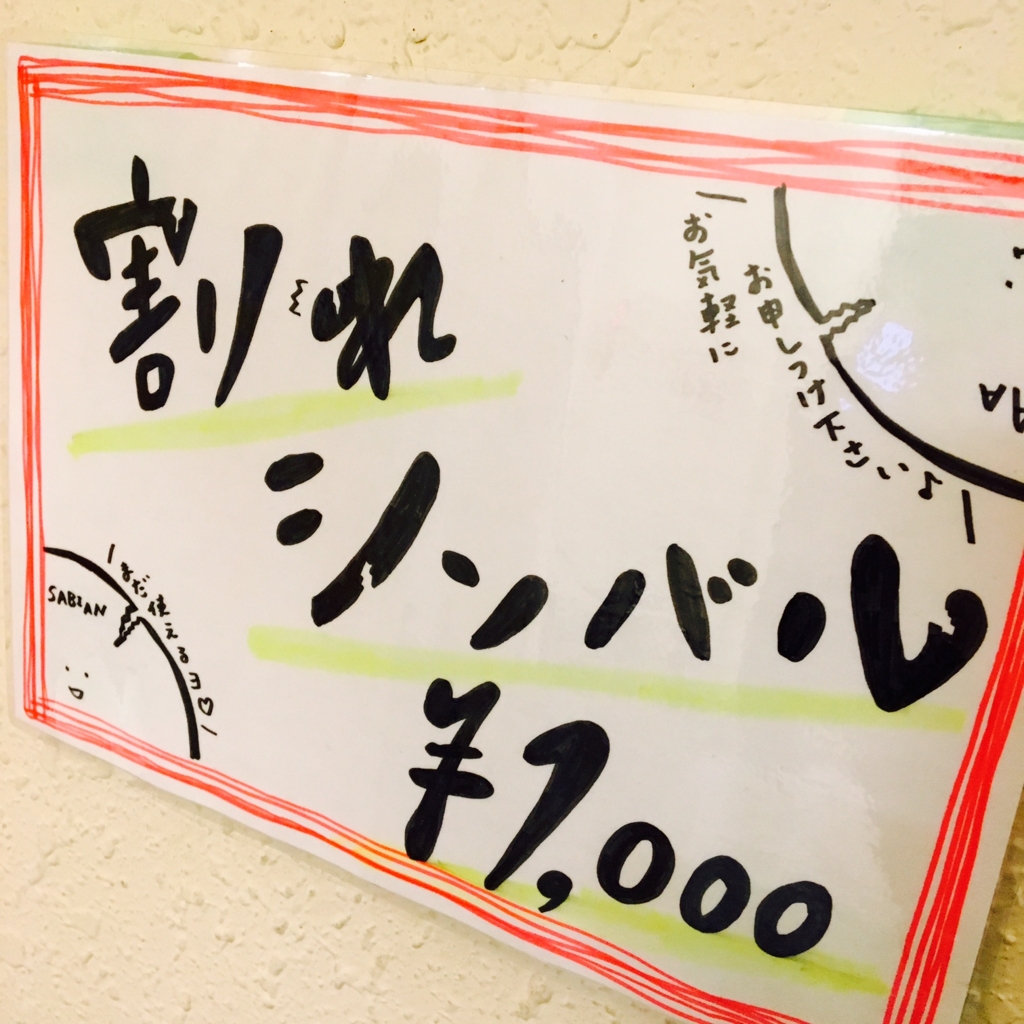 割れ
シンバル
¥1,000
お気軽に
お申しつけ下さい♪
まだ使えるヨ♡
SABIAN